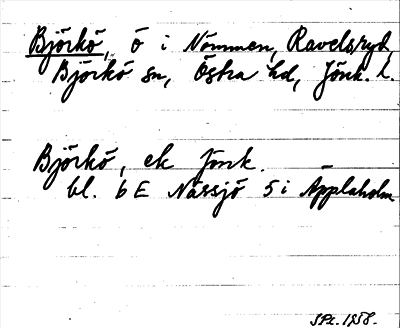 Björkö, ö i Nömmen, Ravelsryd,
Björkö sn, Östra hd, Jönk. l.
Björkö, ek Jönk.
bl. 6 E Nässjö 5 i Äpplaholm
1958.